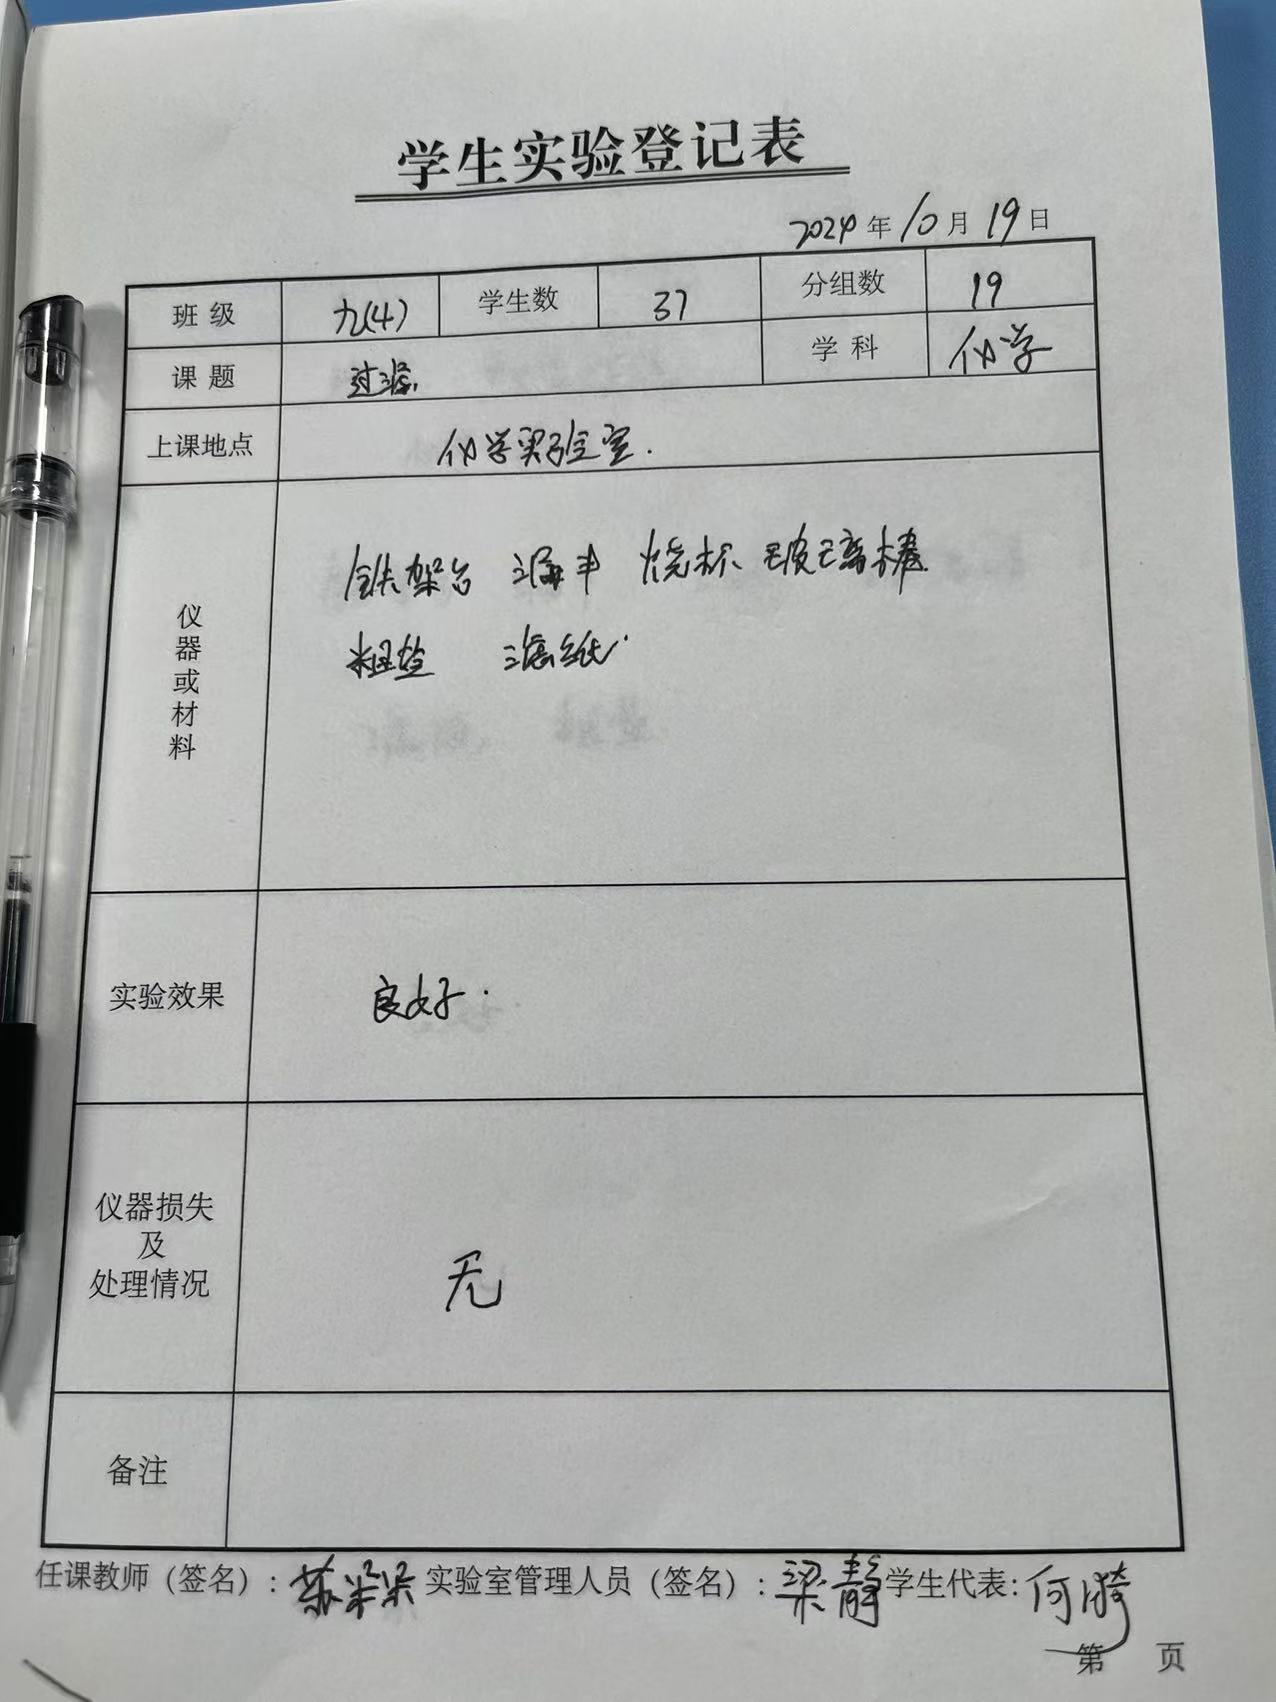 学生实验登记表
2024年10月19日
班级 九(4) 学生数 37 分组数 19
课题 过滤 学科 化学
上课地点 化学实验室.
仪器或材料
铁架台 漏斗 烧杯 玻璃棒
粗盐 滤纸.
实验效果 良好.
仪器损失
及
处理情况
无
备注
任课教师（签名）: 苏 实验室管理人员（签名）: 梁静 学生代表: 何
第 页